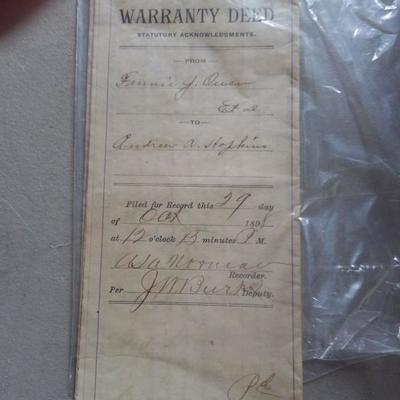 WARRANTY DEED
STATUTORY ACKNOWLEDGMENTS.
FROM
Fannie J. Owen
Et al
TO
Andrew A. Hopkins
Filed for Record this 29 day
of Oct 1898
at 12 o'clock 15 minutes P M.
Recorder.
Per J W Burks Deputy.